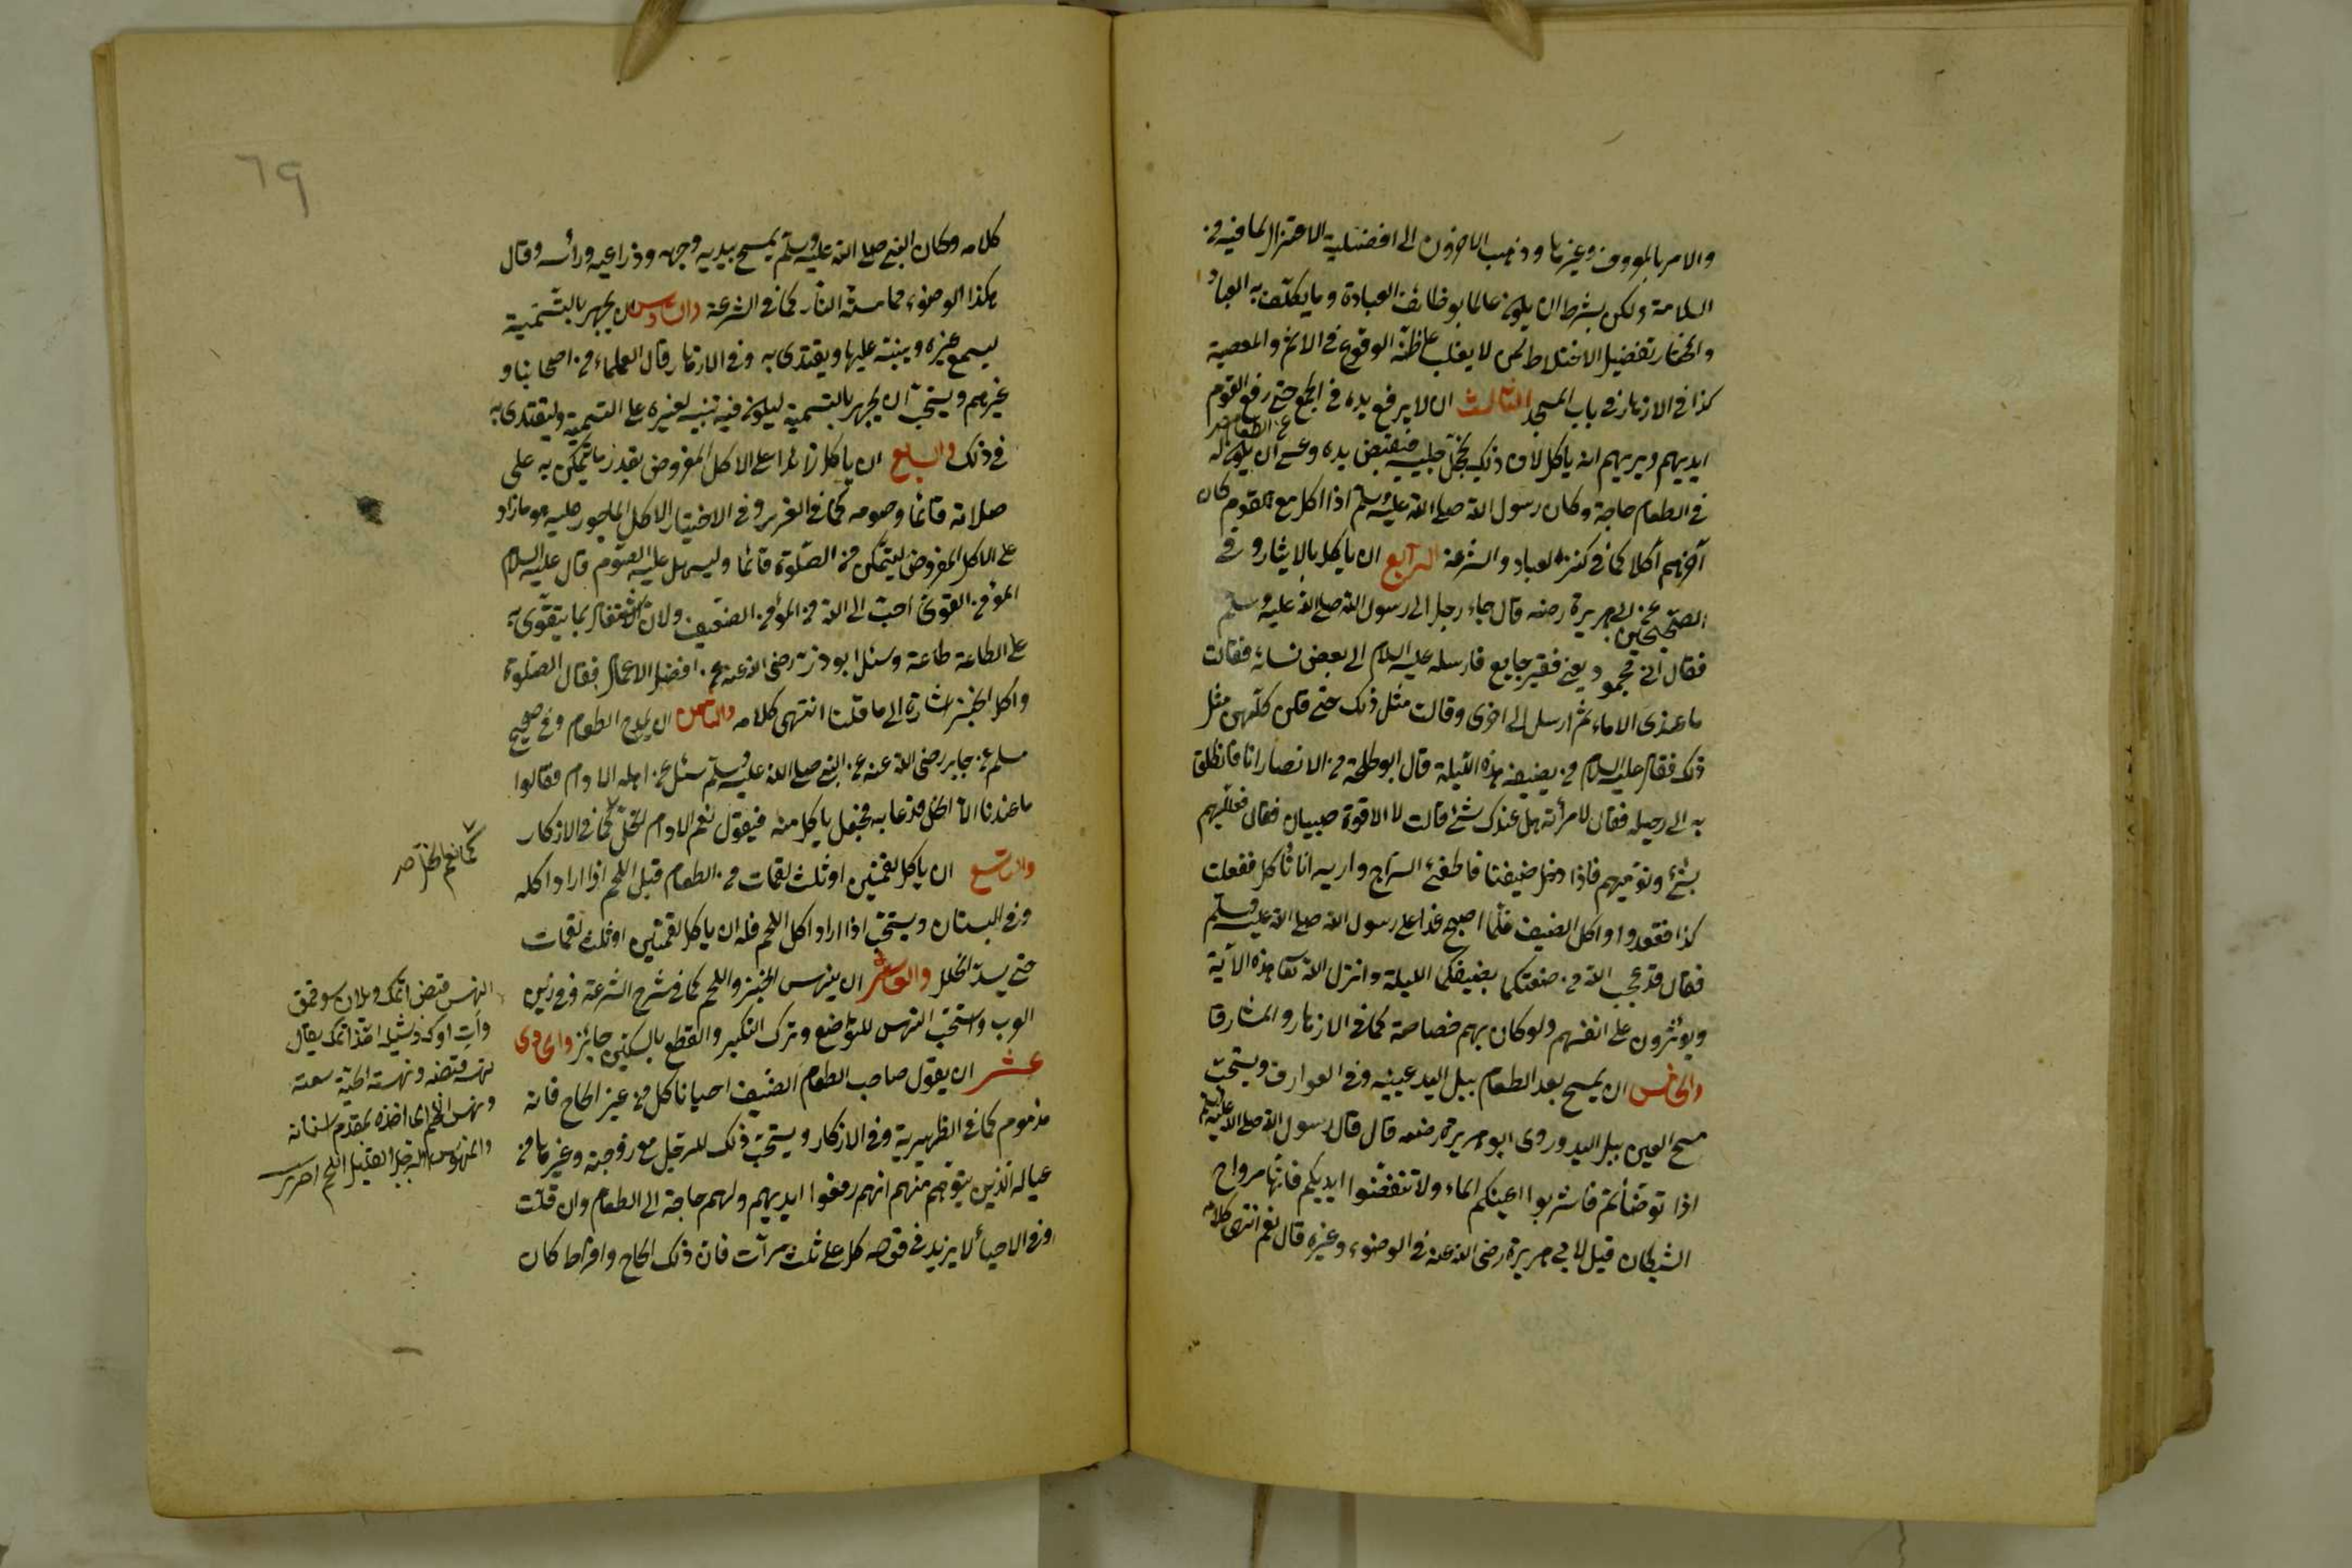 والامر بالمعروف وغيرها وذهب الاخرون الى افضلية الاعتزال لما فيه من
السلامة ولكن بشرط ان يكون عالما بوظائف العبادة وما يكلف به العباد
والمختار تفضيل الاختلاط لمن لا يغلب على ظنه الوقوع فى الاثم والمعصية
كذا فى الازهار فى باب المسجد الثالث ان لا يرفع يده فى الجمع حتى رفع القوم
عن الطعام صح
ايديهم ويريهم انه ياكل لان ذلك يخجل جليسه فيقبض يده وعسى ان يكون له
فى الطعام حاجة وكان رسول الله صلى الله عليه وسلم اذا اكل مع القوم كان
آخرهم اكلا كما فى كنز العباد والشرعة الرابع ان ياكل بالايثار وفى
الصحيحين عن ابى هريرة رضه قال جاء رجل الى رسول الله صلى الله عليه وسلم
فقال انى مجهود يعنى فقير جايع فارسله عليه السلام الى بعض نسائه فقالت
ما عندى الا ماء ثم ارسل الى اخرى وقالت مثل ذلك حتى قلن كلهن مثل
ذلك فقال عليه السلام من يضيف هذه الليلة قال ابو طلحة من الانصار انا فانطلق
به الى رحله فقال لامرأته هل عندك شئ قالت لا الا قوة صبيان فقال فعلليهم
بشئ ونوميهم فاذا دخل ضيفنا فاطفئ السراج واريه انا نأكل ففعلت
كذا فقعدوا واكل الضيف فلما اصبح غدا على رسول الله صلى الله عليه وسلم
فقال قد عجب الله من صنعتكما بضيفكما الليلة وانزل الله تعا هذه الآية
ويؤثرون على انفسهم ولو كان بهم خصاصة كما فى الازهار والمشارق
والخامس ان يمسح بعد الطعام ببلل اليد عينيه وفى العوارف ويستحب
مسح العين ببلل اليد وروى ابو هريرة رضه قال قال رسول الله صلى الله عليه وسلم
اذا توضأتم فاشربوا اعينكم الماء ولا تنفضوا ايديكم فانها مرواح
الشيطان قيل لابى هريرة رضى الله عنه فى الوضوء وغيره قال نعم انتهى كلامه
٦٩
كلامه وكان النبى صلى الله عليه وسلم يمسح بيديه وجهه وذراعيه ورأسه وقال
هكذا الوضوء مما مسته النار كما فى الشرعة والسادس ان يجهر بالتسمية
ليسمع غيره وينبه عليها ويقتدى به وفى الازهار قال العلماء من اصحابنا و
غيرهم ويستحب ان يجهر بالتسمية ليكون فيه تنبيه لغيره على التسمية وليقتدى به
فى ذلك والسابع ان ياكل زائدا على الاكل المفروض بقدر ما يتمكن به على
صلاته قائما وصومه كما فى الغرر وفى الاختيار الاكل الماجور عليه هو ما زاد
على الاكل المفروض ليتمكن من الصلوة قائما وليسهل عليه الصوم قال عليه السلام
المؤمن القوى احب الى الله من المؤمن الضعيف ولان الاشتغال بما يتقوى به
على الطاعة طاعة وسئل ابو ذر رضى الله عنه عن افضل الاعمال فقال الصلوة
واكل الخبز اشارة الى ما قلنا انتهى كلامه والثامن ان يمدح الطعام وفى صحيح
مسلم عن جابر رضى الله عنه عن النبى صلى الله عليه وسلم سئل عن اهله الادام فقالوا
ما عندنا الا الخل فدعا به فجعل ياكل منه فيقول نعم الادام الخل كما فى الاذكار
والتاسع ان ياكل لقمتين او ثلث لقمات من الطعام قبل اللحم اذا اراد اكله
وفى البستان ويستحب اذا اراد اكل اللحم فله ان ياكل لقمتين او ثلث لقمات
حتى يسد الخلل والعاشر ان ينهس الخبز واللحم كما فى شرح الشرعة وفى زين
العرب واستحب النهس للتواضع وترك التكبر والقطع بالسكين جائز والحادى
عشر ان يقول صاحب الطعام الضيف احيانا كل من غير الحاح فانه
مذموم كما فى الظهيرية وفى الاذكار ويستحب ذلك للرجل مع زوجته وغيرها من
عياله الذين يتوهم منهم انهم رفعوا ايديهم ولهم حاجة الى الطعام وان قلت
وفى الاحيأ لا يزيد فى قوله كل على ثلث مرآت فان ذلك الحاح وافراط كان
نعم الخل صح
ونهس اللحم اى اخذه بمقدم اسنانه